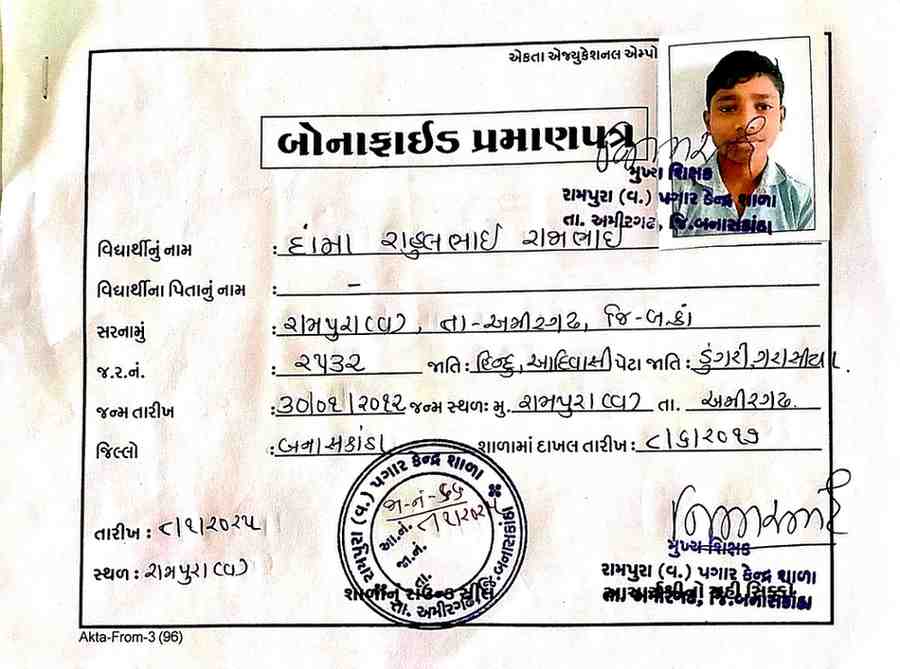 એકતા એજ્યુકેશનલ એમ્પો
બોનાફાઈડ પ્રમાણપત્ર
મુખ્ય શિક્ષક
રામપુરા (વ.) પગાર કેન્દ્ર શાળા
તા. અમીરગઢ, જિ.બનાસકાંઠા
વિદ્યાર્થીનું નામ : દાંમા રાહુલભાઈ રામભાઈ
વિદ્યાર્થીના પિતાનું નામ : –
સરનામું : રામપુરા(વ), તા-અમીરગઢ, જિ-બ.કાં
જ.ર.નં. : ૨૫૩૨ જાતિ : હિન્દુ, આદિવાસી પેટા જાતિ : ડુંગરી ગરાસીયા.
જન્મ તારીખ : ૩૦/૦૧/૨૦૧૨ જન્મ સ્થળઃ મુ. રામપુરા(વ) તા. અમીરગઢ.
જિલ્લો : બનાસકાંઠા શાળામાં દાખલ તારીખ : ૮/૬/૨૦૧૭
રામપુરા (વ.) પગાર કેન્દ્ર શાળા
તા. અમીરગઢ જિ.બનાસકાંઠા
જા-નં-૬૬
આ.નં. ૮/૧/૨૦૨૫
જા.નં.
તા.
તારીખ : ૮/૧/૨૦૨૫
સ્થળ : રામપુરા(વ)
શાળાનું રાઉન્ડ સીલ
મુખ્ય શિક્ષક
રામપુરા (વ.) પગાર કેન્દ્ર શાળા
તા. અમીરગઢ, જિ.બનાસકાંઠા
આચાર્યશ્રીનો સહી સિક્કો
Akta-From-3 (96)